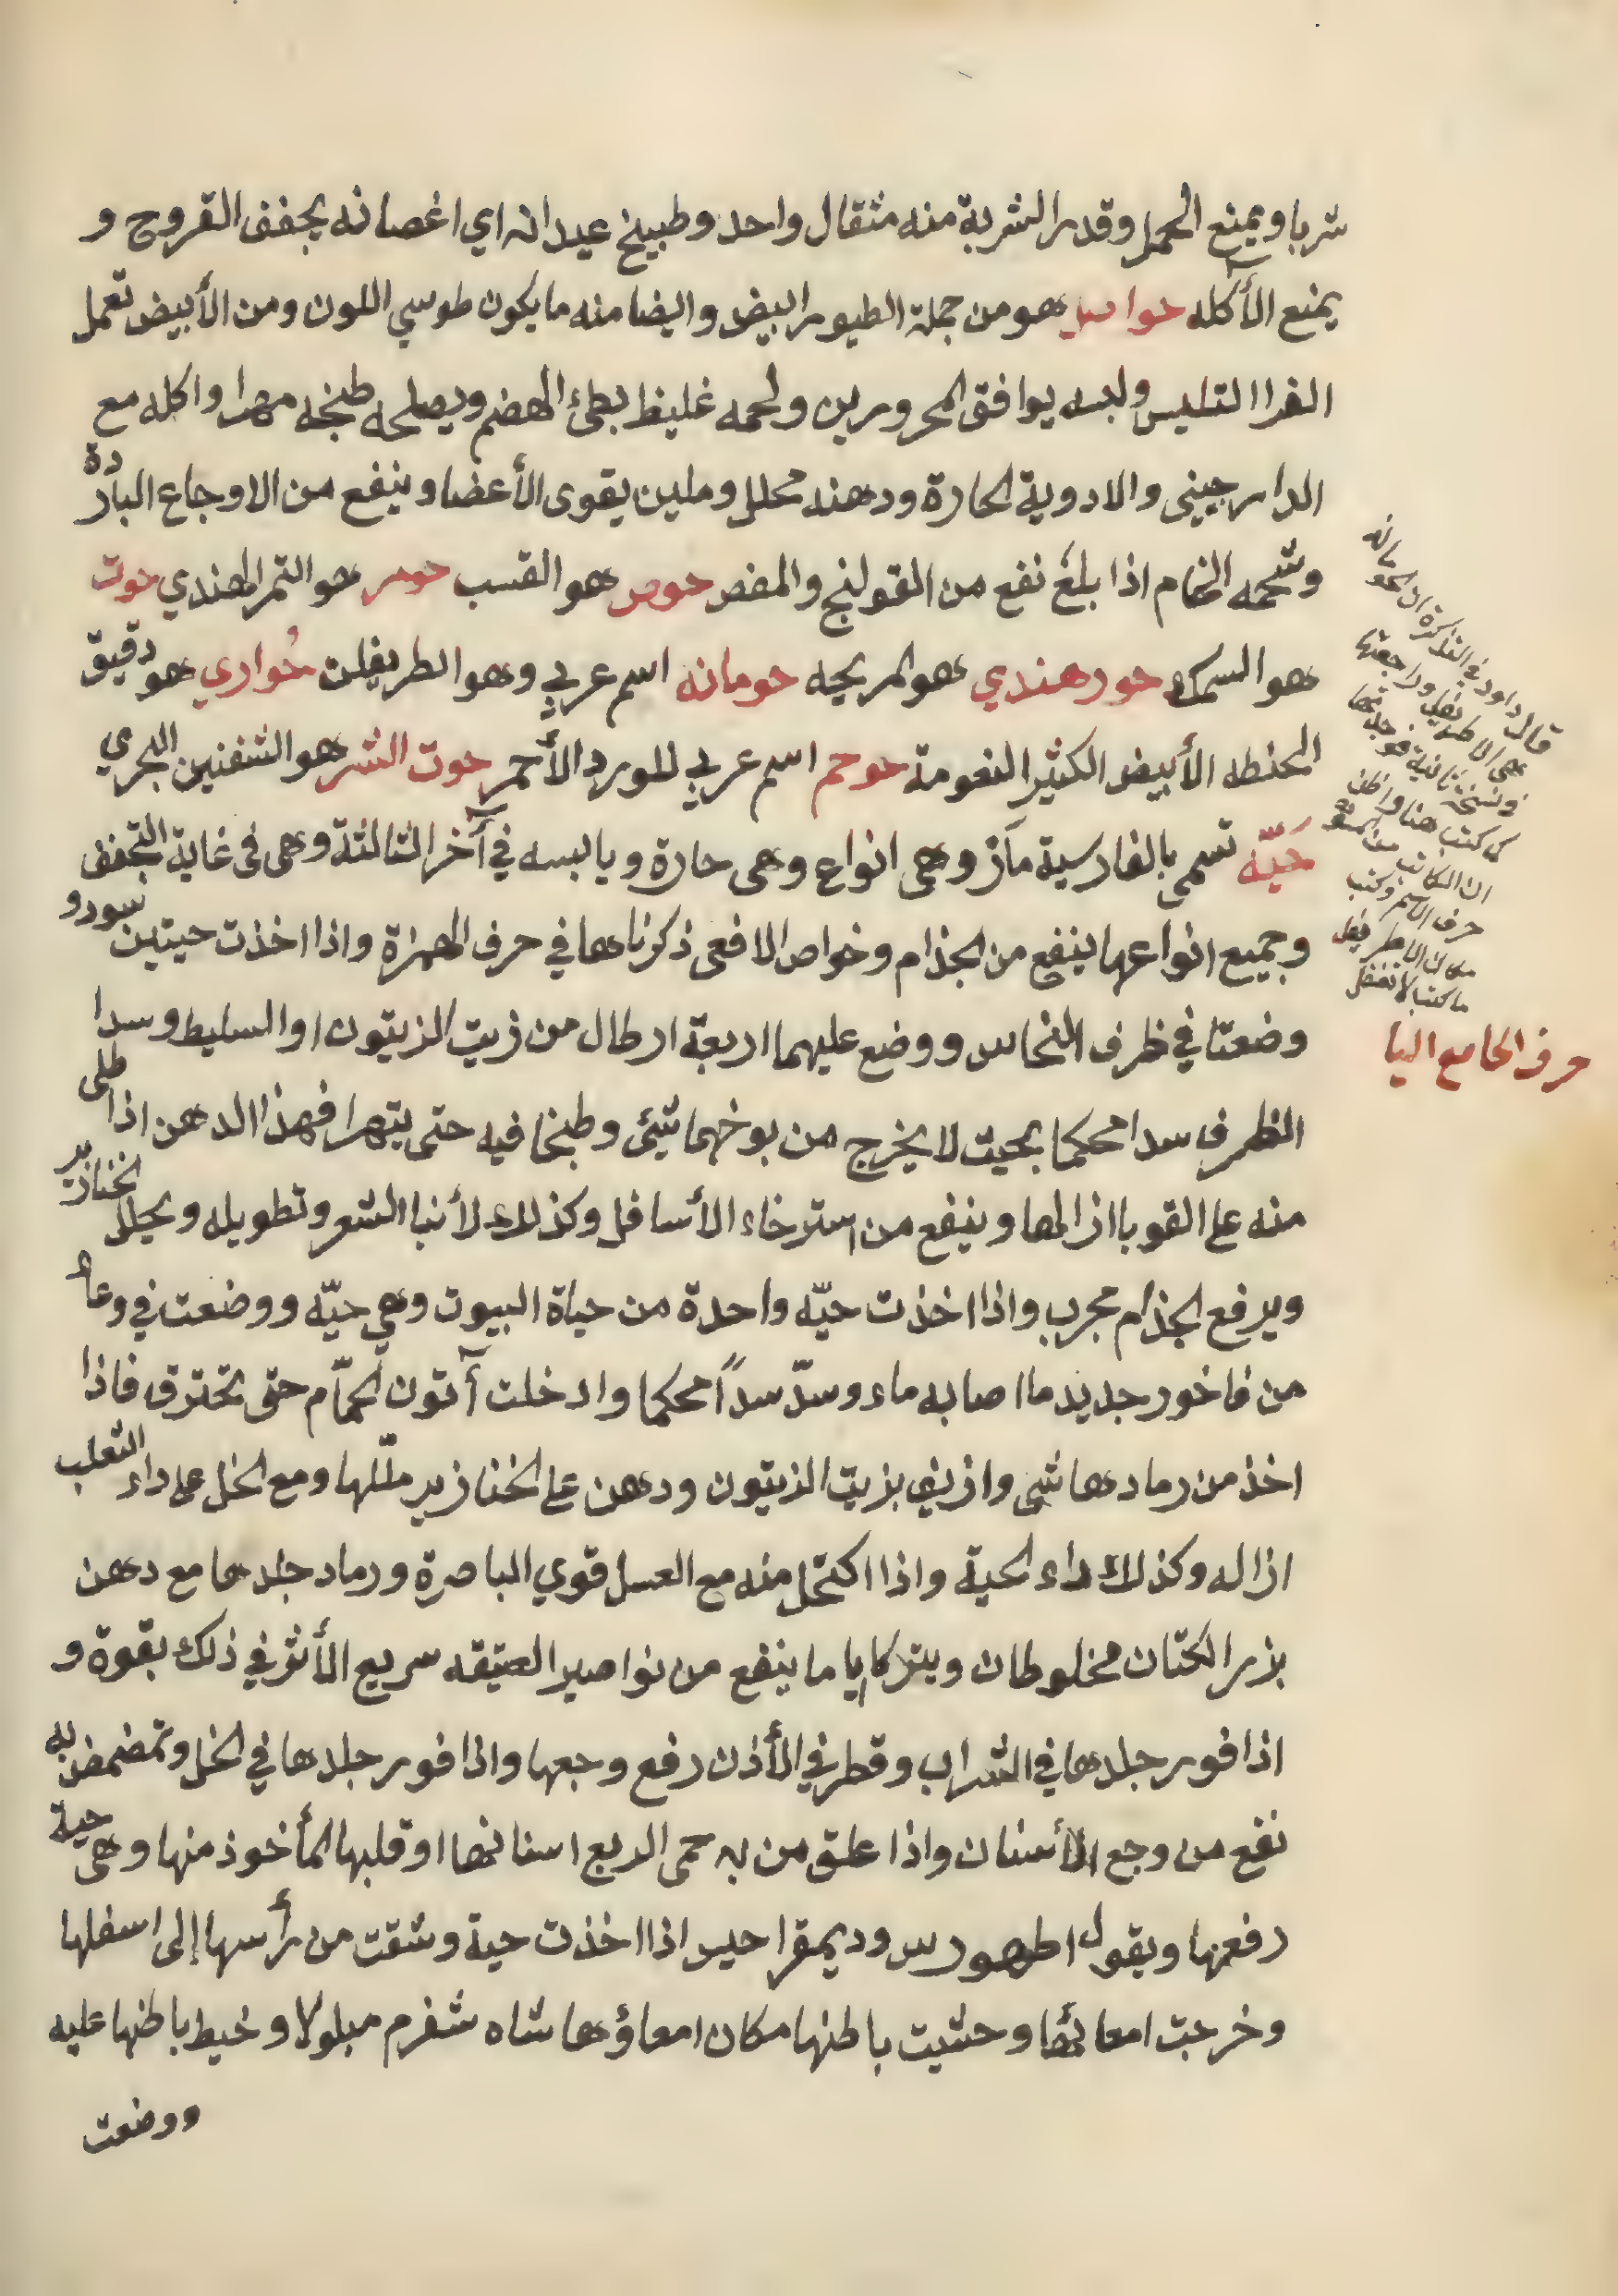 شربا ويمنع الحمل وقدر الشربة منه مثقال واحد وطبيخ عيدانه اي اغصانه يجفف القروح و
يمنع الأكله حواصل هو من جملة الطيور ابيض وايضا منه ما يكون طوسي اللون ومن الأبيض تعمل
الفرا ولبسه يوافق المحرورين ولحمه غليظ بطئ الهضم ويصلحه طبخه مهرا واكله مع
الدارجيني والادوية الحارة ودهنه محلل وملين يقوى الأعضا وينفع من الاوجاع الباردة
وشحمه الخام اذا بلغ نفع من القولنج والمغص حوص هو القسب حومر هو التمر الهندي حوت
هو السمك حور هندي هو المريحه حومانه اسم عربي وهو الطريفلن حُواري هو دقيق
الحنطه الأبيض الكثير النعومة حوجم اسم عربي للورد الأحمر حوت الشر هو الشفنين البحري
حَيّه تسمى بالفارسية مآر وهي انواع وهى حارة ويابسه في آخر الثالثة وهى فى غاية التجفف
وجميع انواعها ينفع من الجذام وخواص الافعى ذكرناها في حرف الهمزة واذا اخذت حيتين سود و
وضعتا في ظرف النحاس ووضع عليهما اربعة ارطال من زيت الزيتون او السليط وسدا
الظرف سدا محكما بحيث لا يخرج من بوخهما شيئ وطبخا فيه حتى يتهرا فهذا الدهن اذا طلى
منه على القوبا ازالها وينفع من استرخاء الأسافل وكذلك لأنبا الشعر وتطويله ويحلل الخنازير
ويرفع الجذام مجرب واذا اخذت حيّه واحدة من حياة البيوت وهي حيّه ووضعت في وعاء
من فاخور جديد ما اصابه ماء وسدّ سداً محكما وادخلت آتون الحمّام حتى تحترق فاذا
اخذ من رمادها شي واذيف بزيت الزيتون ودهن على الخنازير مثلها ومع الخل على داء الثعلب
ازاله وكذلك داء الحية واذا اكتحل منه مع العسل قوي الباصرة ورماد جلدها مع دهن
بزر الكتان مخلوطان ويتركا اياما ينفع من نواصير العتيقه سريع الأثر في ذلك بقوة و
اذا فور جلدها في الشراب وقطر في الأذن رفع وجعها واذا فور جلدها في الخل وتمضمض به
نفع من وجع الأسنان واذا علق من به حمى الربع اسنانها او قلبها المأخوذ منها وهى حية
رفعها ويقول اطهورس وديمقراحيس اذا اخذت حية وشقت من رأسها إلى اسفلها
وخرجت امعائها وحشيت باطنها مكان امعاؤها شاه شفرم مبلولا وخيط باطنها عليه
ووضعت
قال داود في التذكرة ان الحومانه
هى الاطريفل وراجعتها
في نسخة ثانية فوجدتها
كما كتب هنا واظن
ان الكاتب
حرف الاسم وكتب
مكان الاطريفل
ما كتب لا تغفل
حرف الحا مع اليا